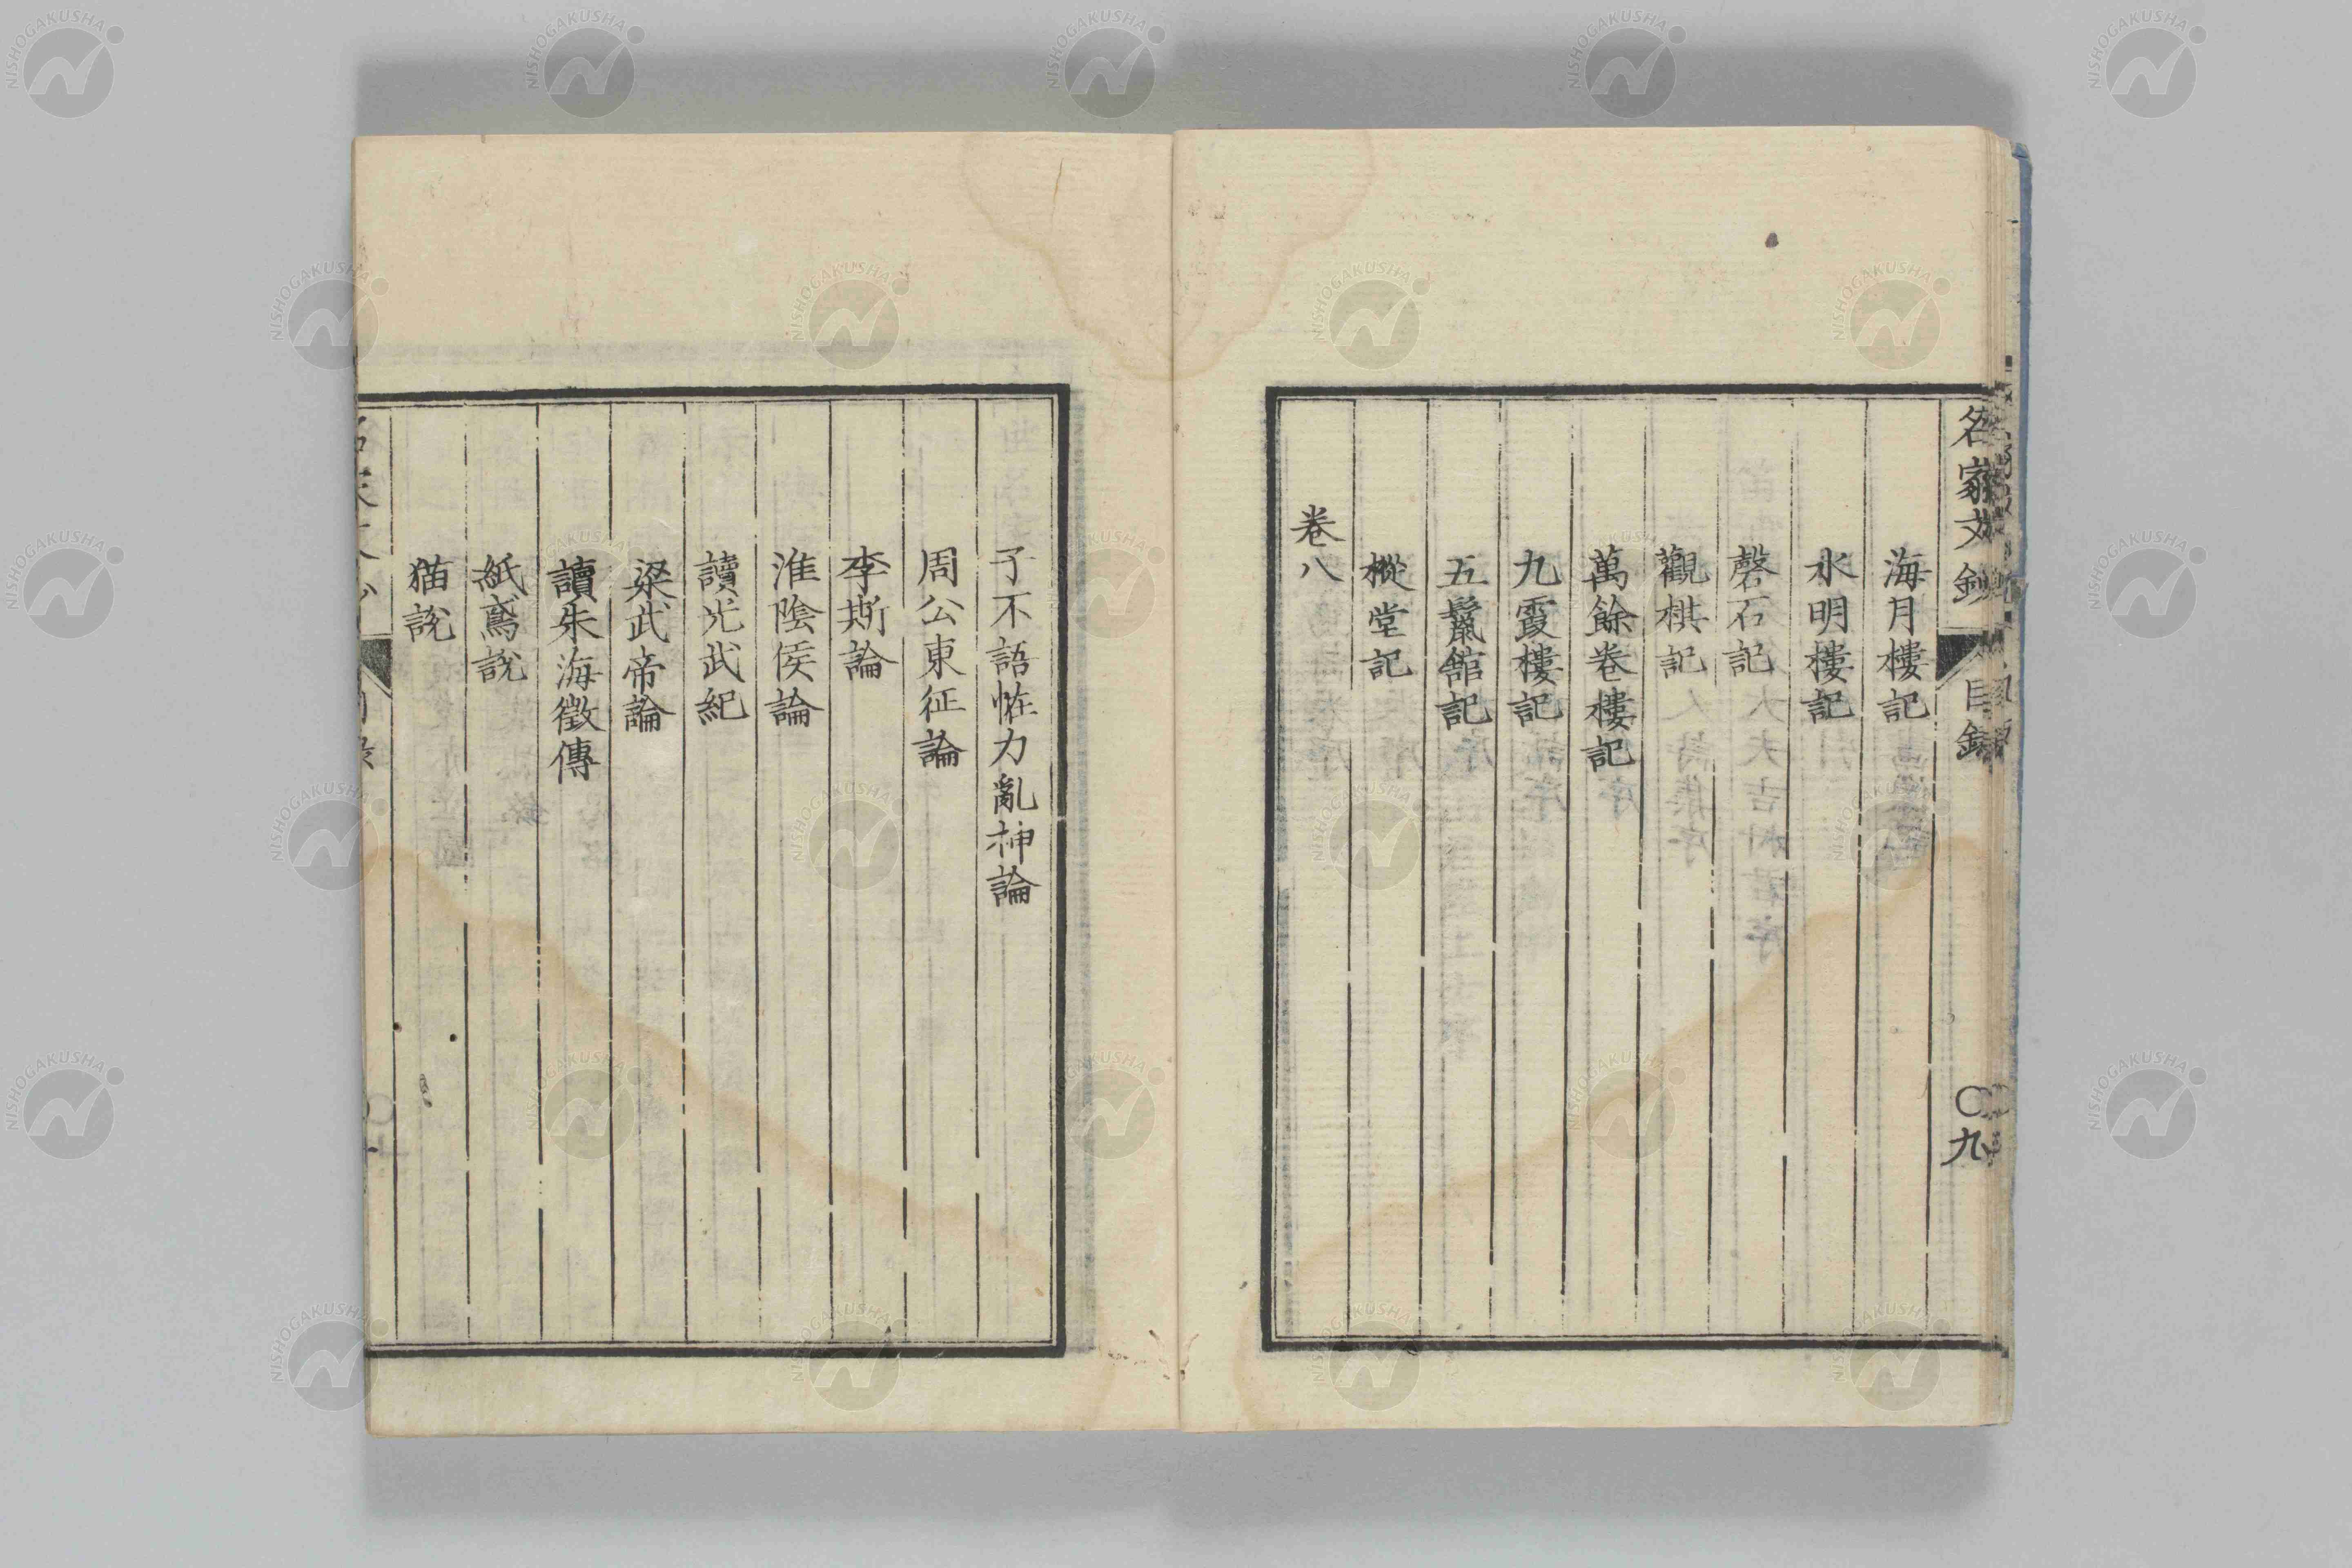 名家文鈔
目錄
〇九
海月樓記
水明樓記
磬石記
觀棋記
萬餘卷樓記
九霞樓記
五鬣舘記
樅堂記
卷八
子不語恠力亂神論
周公東征論
李斯論
淮陰侯論
讀光武紀
梁武帝論
讀朱海徵傳
紙鳶說
猫說
NISHOGAKUSHA